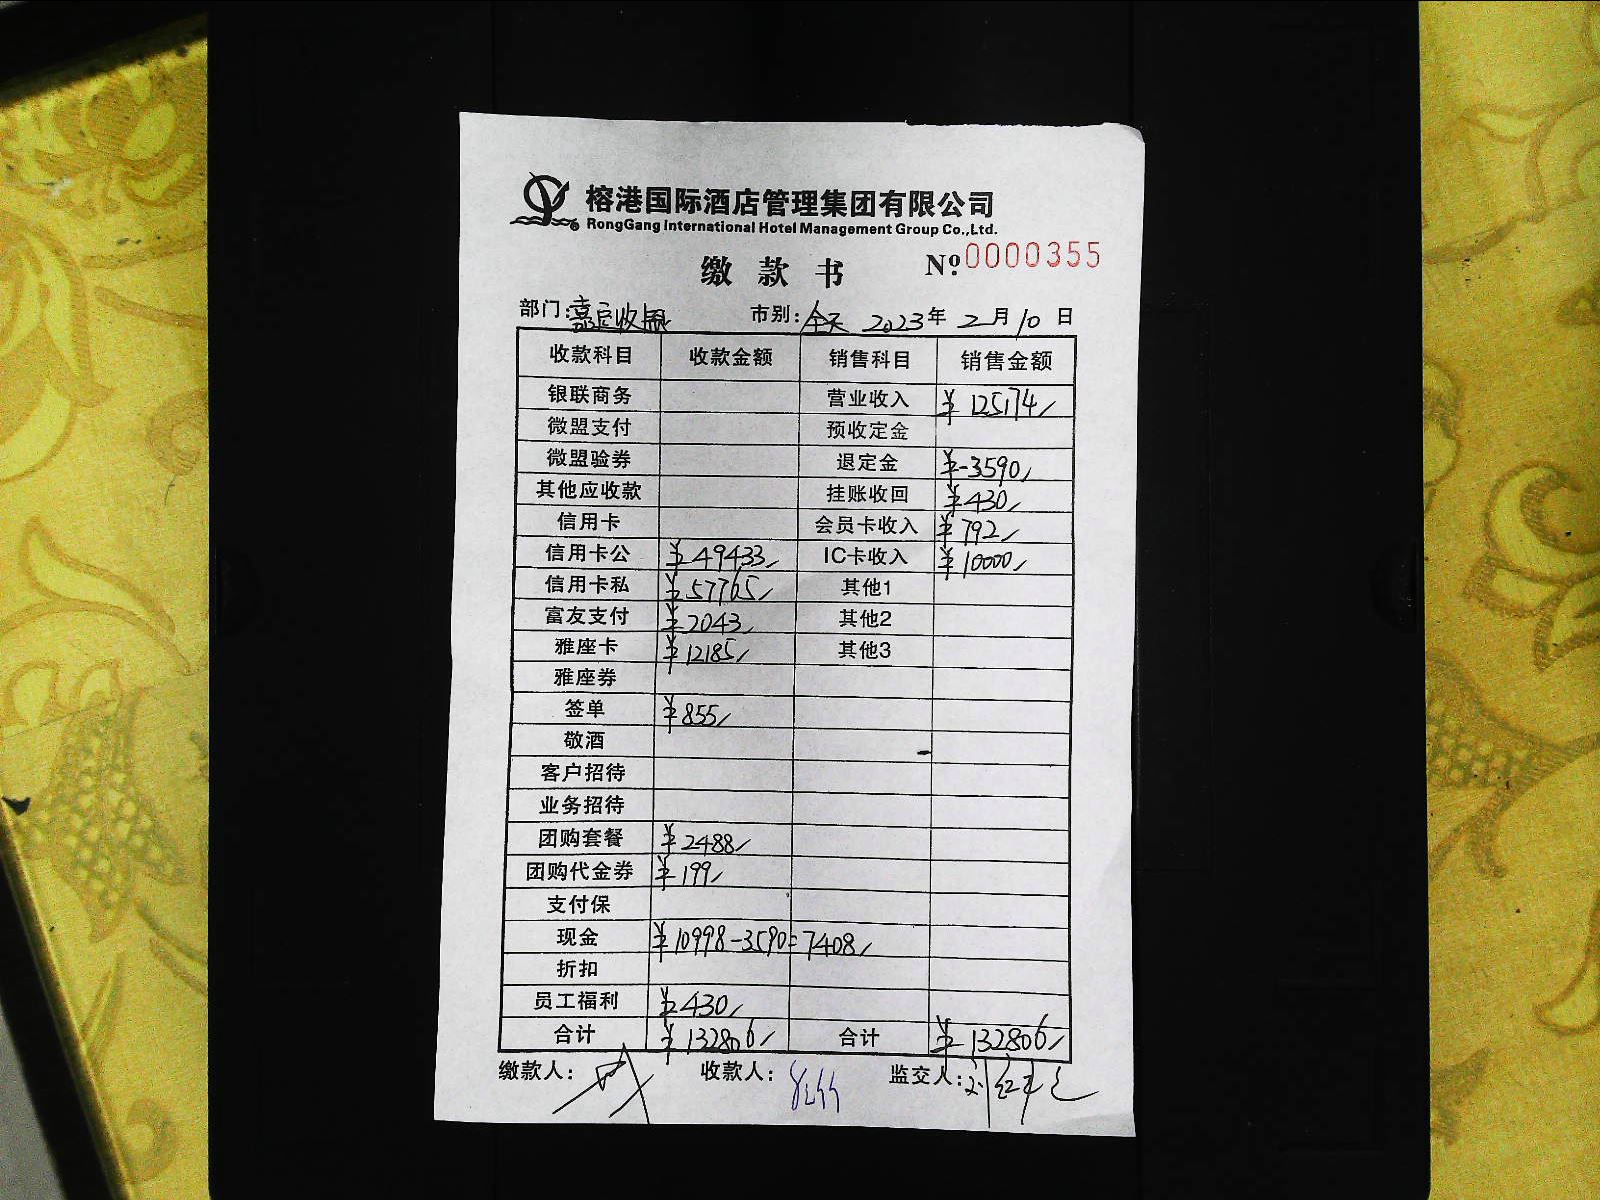 榕港国际酒店管理集团有限公司
RongGang International Hotel Management Group Co.,Ltd.
缴款书 Nº 0000355
部门:嘉定收银 市别:全天 2023年2月10日
收款科目 收款金额 销售科目 销售金额
银联商务 营业收入 ¥125174
微盟支付 预收定金
微盟验券 退定金 ¥-3590
其他应收款 挂账收回 ¥430
信用卡 会员卡收入 ¥792
信用卡公 ¥49433 IC卡收入 ¥10000
信用卡私 ¥57765 其他1
富友支付 ¥2043 其他2
雅座卡 ¥12185 其他3
雅座券
签单 ¥855
敬酒
客户招待
业务招待
团购套餐 ¥2488
团购代金券 ¥199
支付保
现金 ¥10998-3590=7408
折扣
员工福利 ¥430
合计 ¥132806 合计 ¥132806
缴款人: 收款人: 监交人: